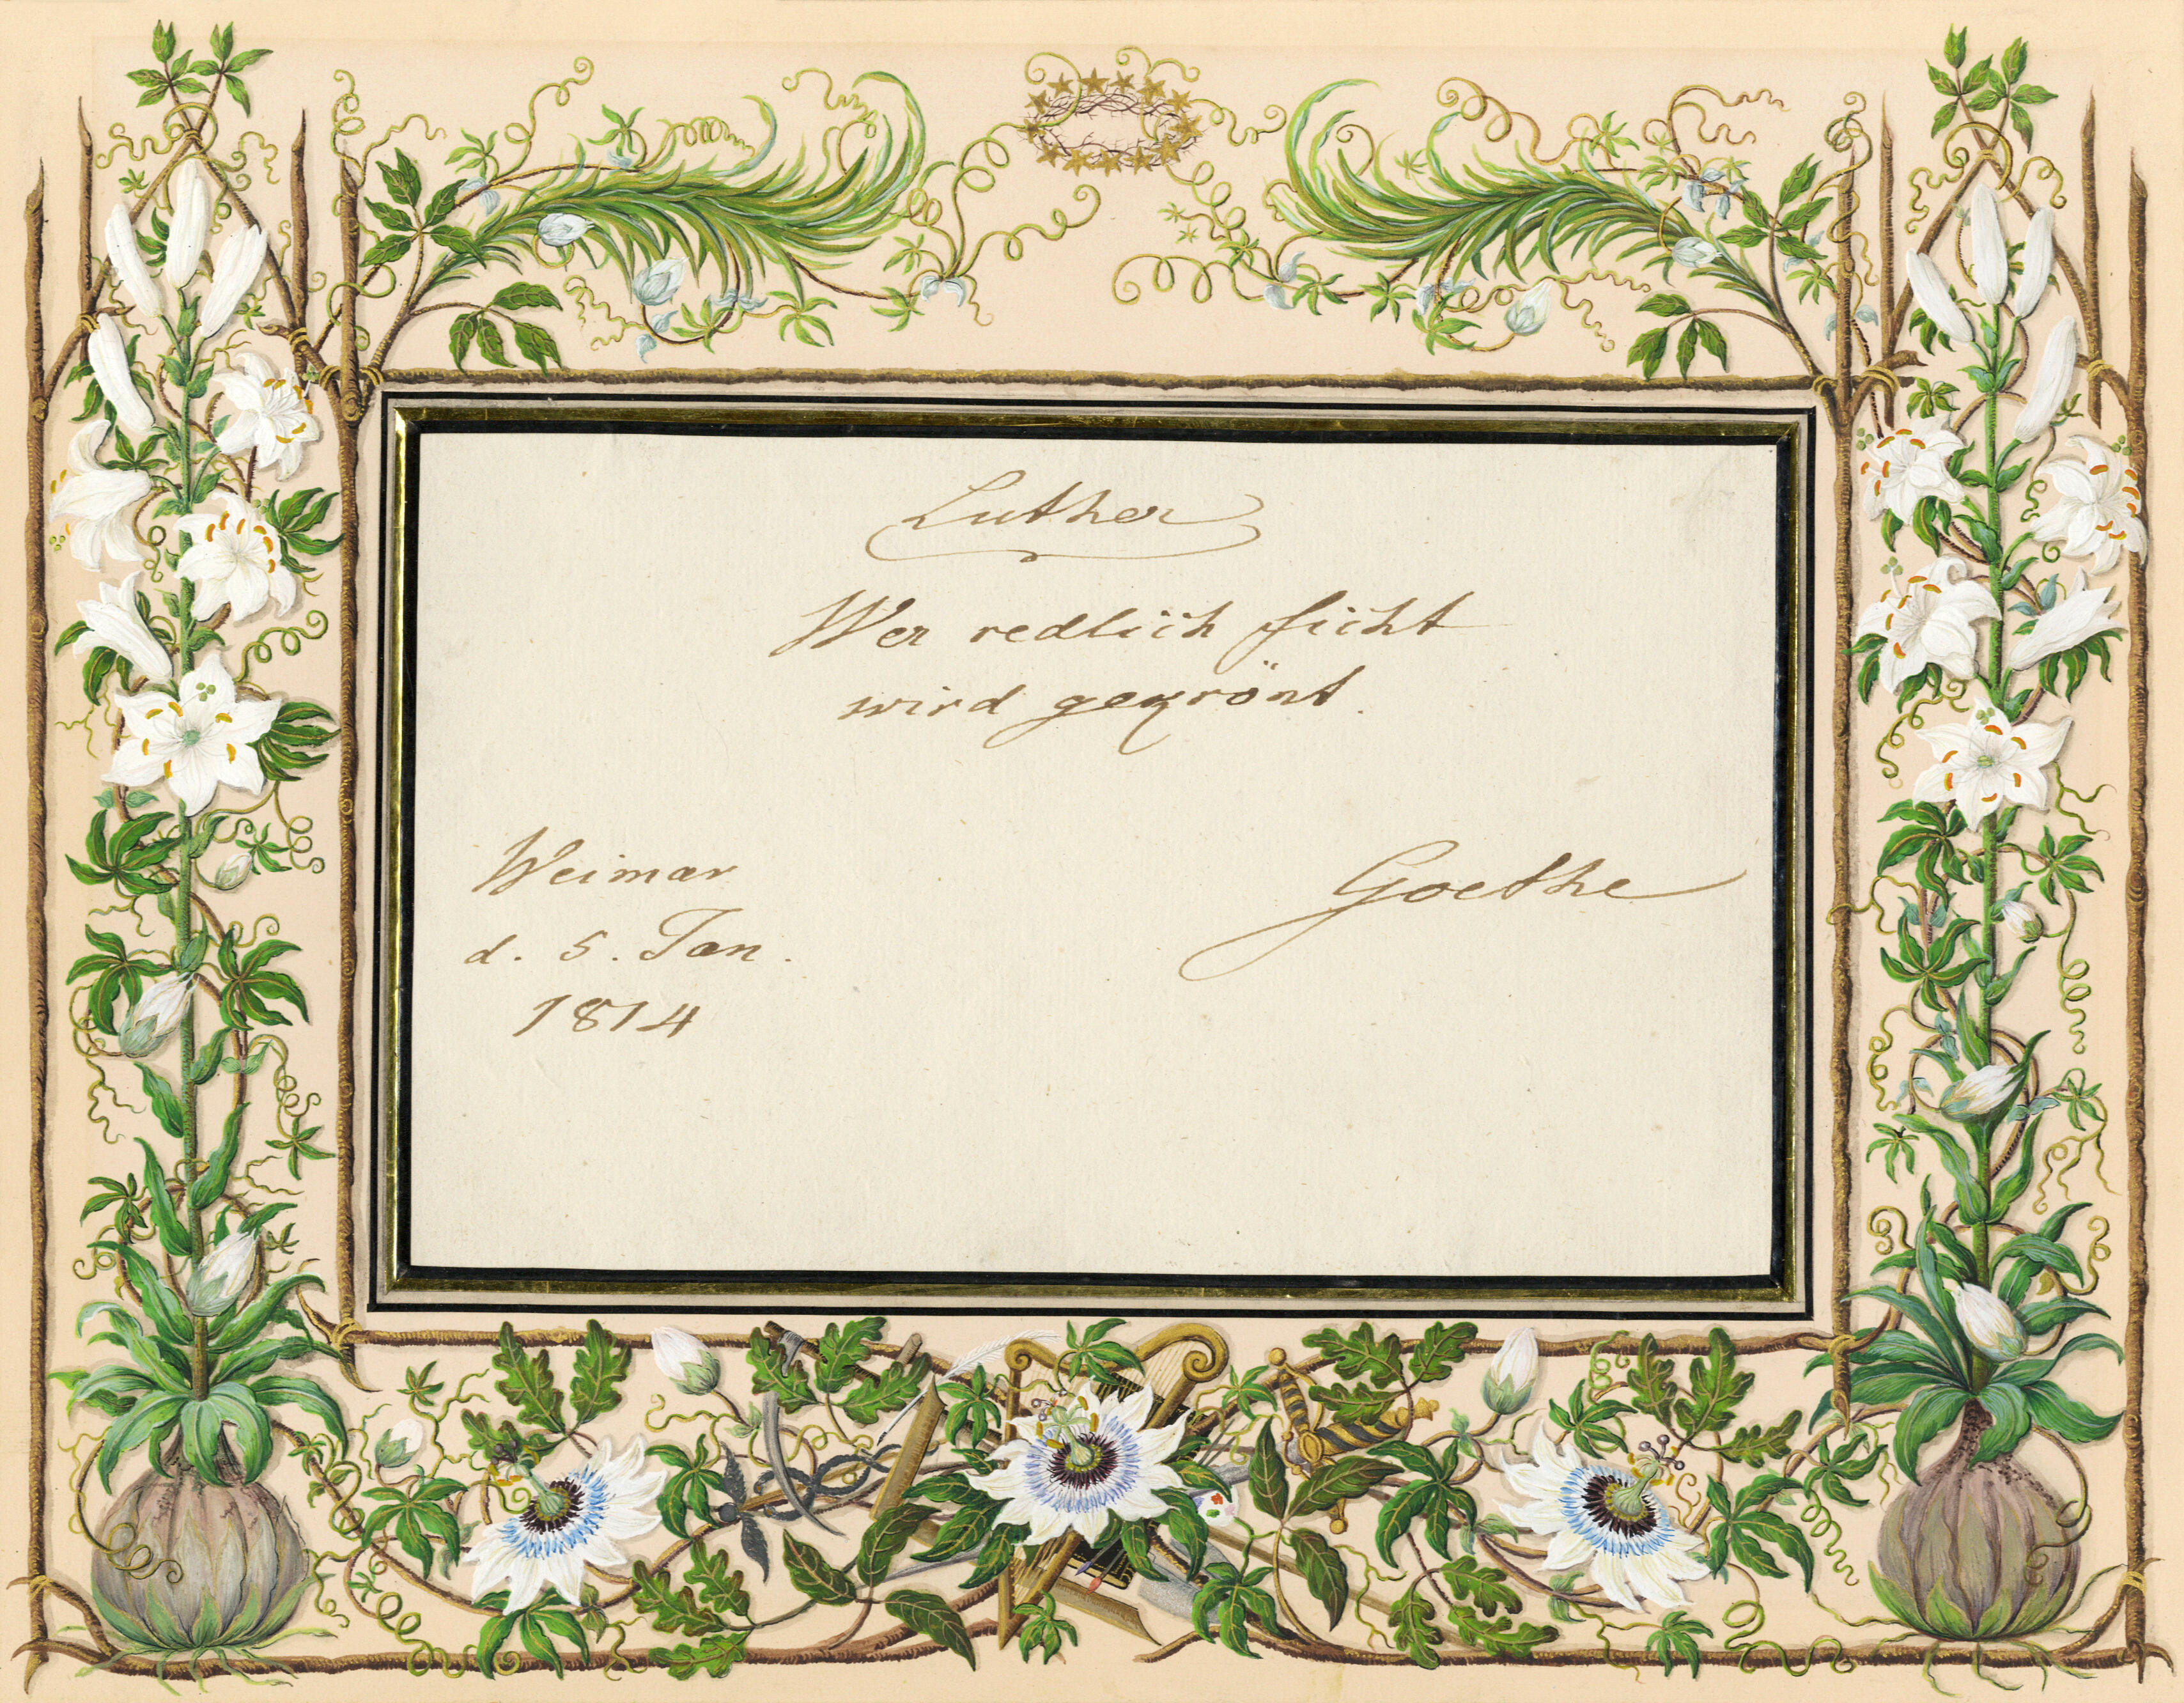 Luther
Wer redlich ficht
wird gekrönt.
Weimar
d. 5. Jan.
1814
Goethe